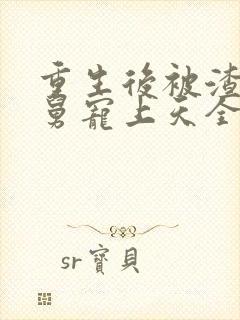 重生後被渣
舅寵上天全
sr寶貝